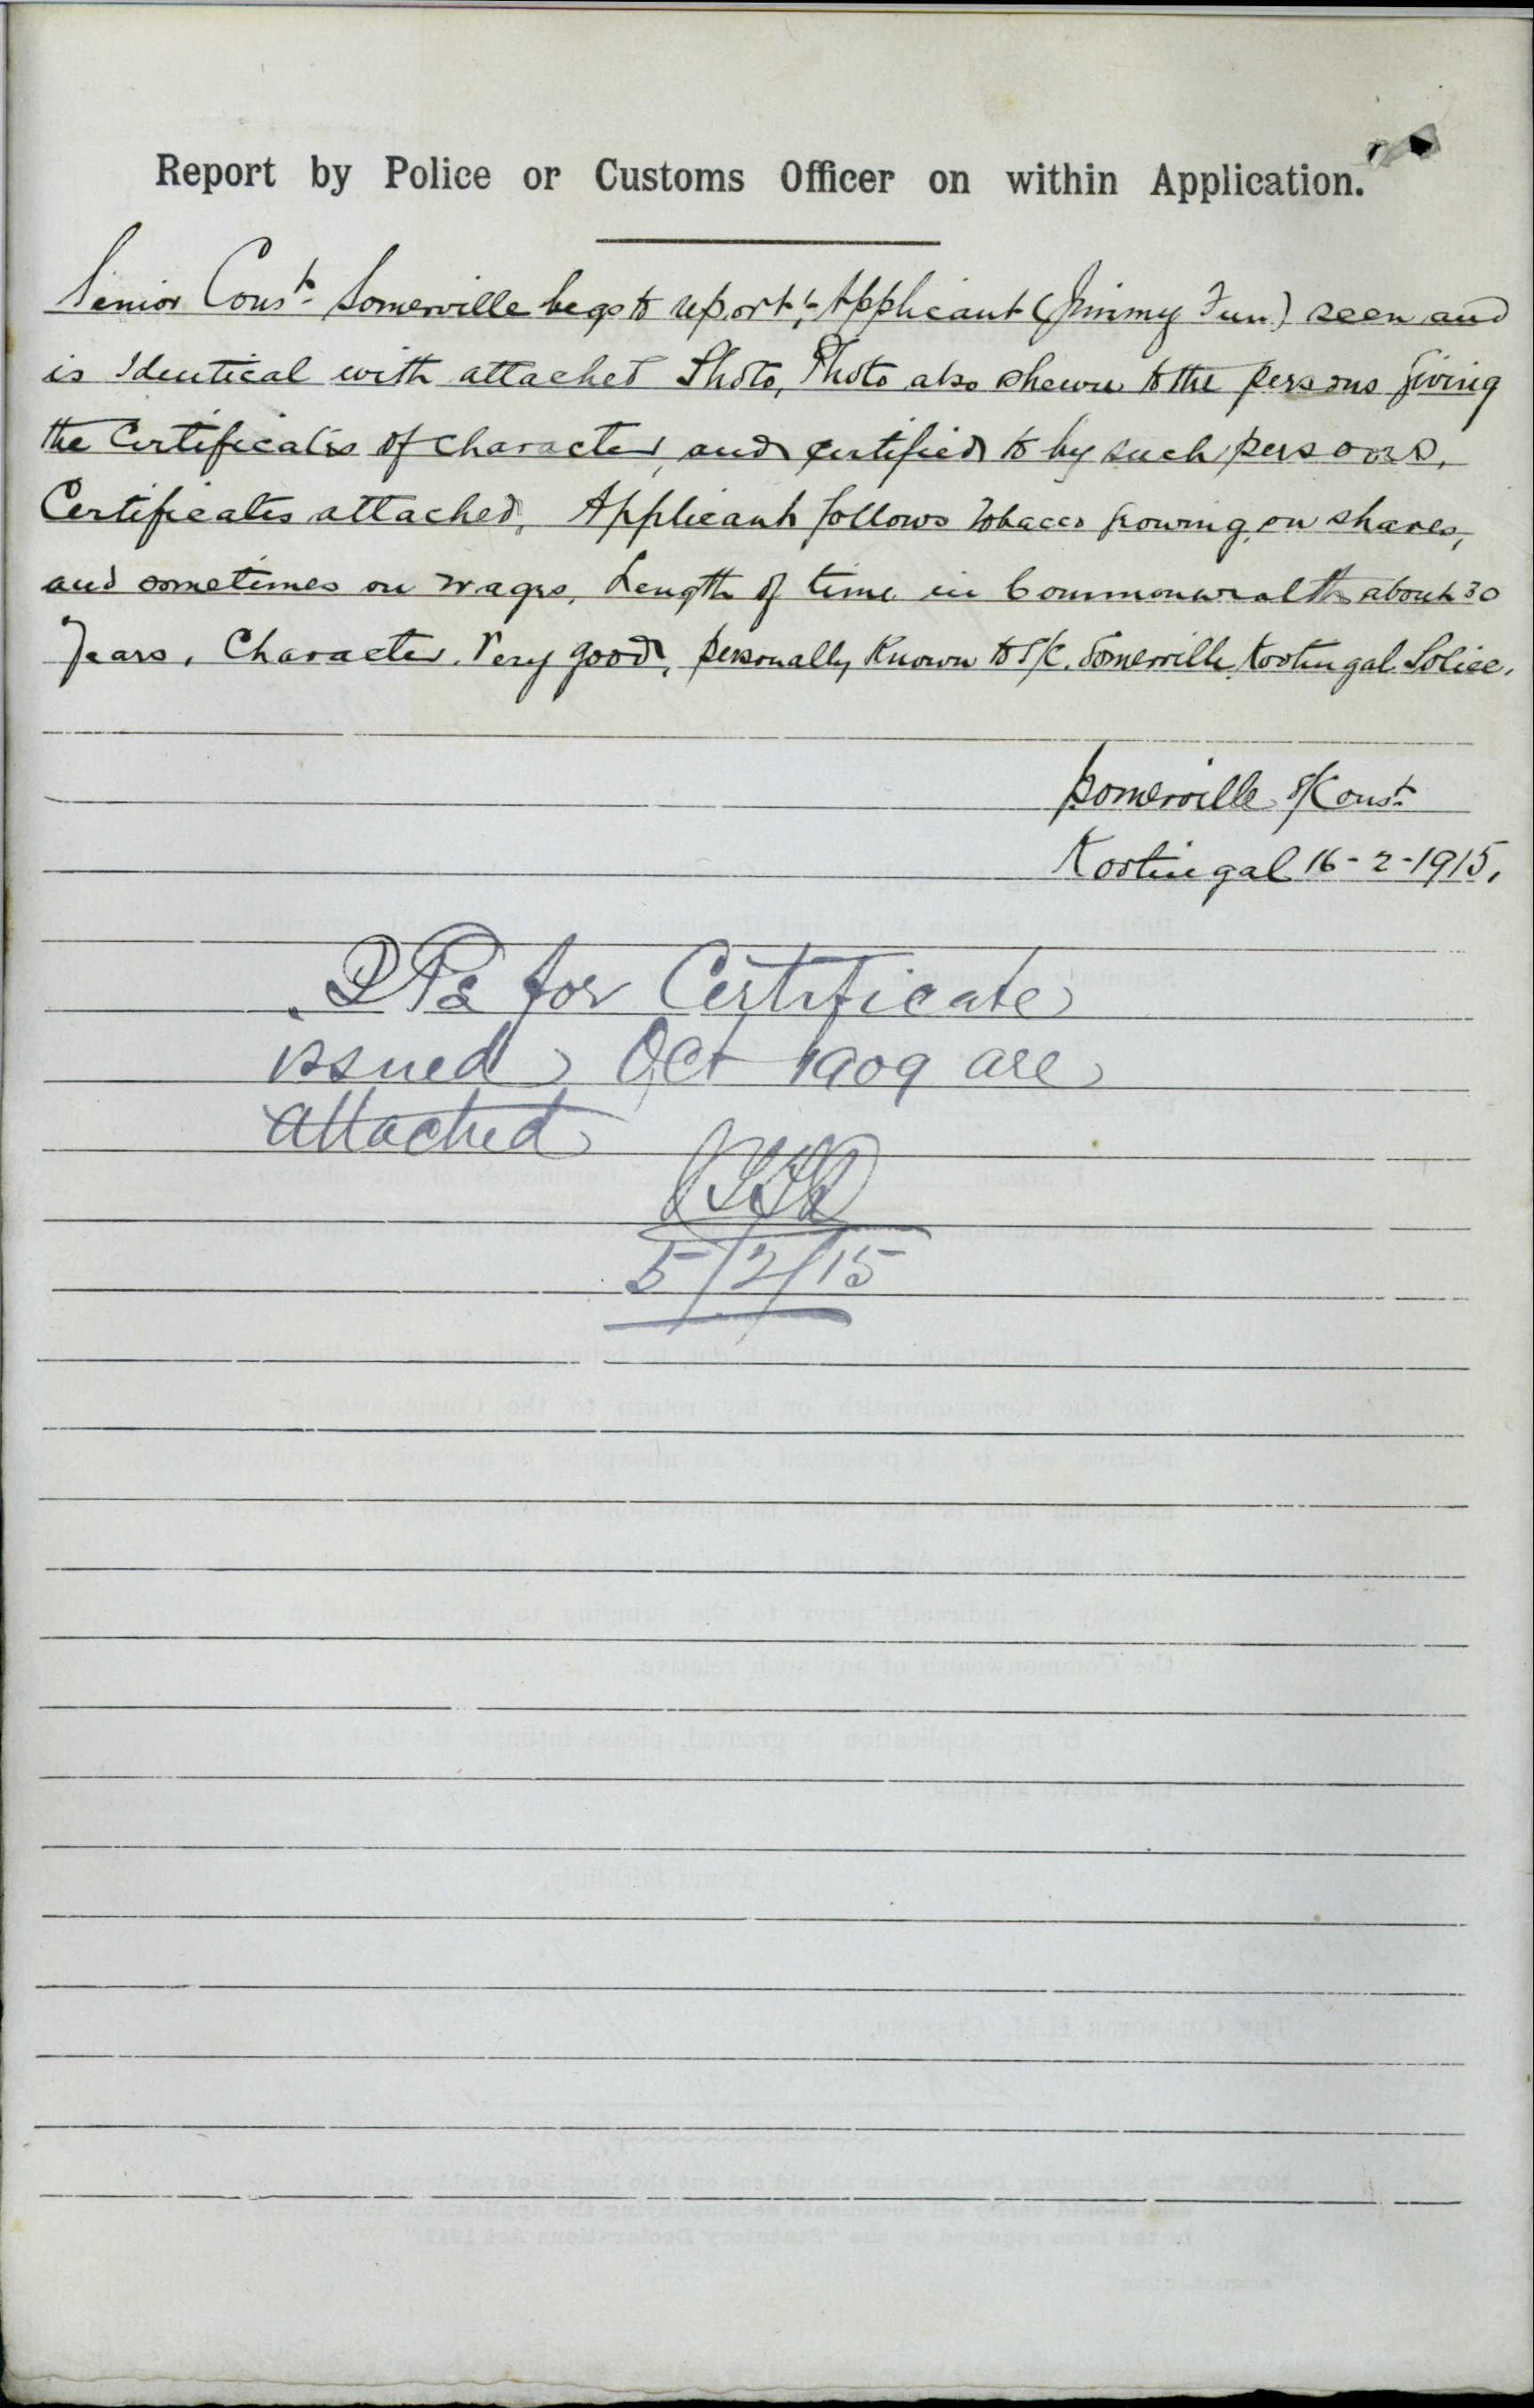 Report by Police or Customs Officer on within Application.
Senior Const. Somerville begs to report, Applicant (Jimmy Fun) seen and
is Identical with attached Photo, Photo also shewn to the persons giving
the Certificates of Character, and certified to by such persons,
Certificates attached, Applicant follows Tobacco growing on shares,
and sometimes on wages, Length of time in Commonwealth about 30
Years, Character Very good, personally Known to S/C. Somerville Kootingal Police.
Somerville S/Const.
Kootingal 16-2-1915,
for Certificate
issued Oct 1909 are
attached
5/2/15